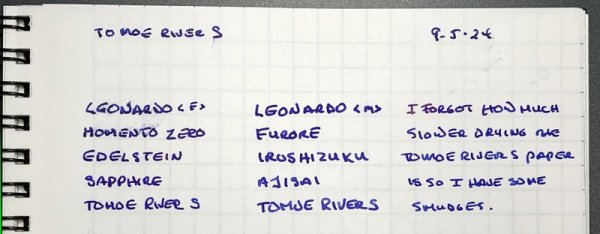 TOMOE RIVER S 9.5.24
LEONARDO <F> LEONARDO <M> I FORGOT HOW MUCH
MOMENTO ZERO FURORE SLOWER DRYING THE
EDELSTEIN IROSHIZUKU TOMOE RIVER S PAPER
SAPPHIRE AJISAI IS SO I HAVE SOME
TOMOE RIVER S TOMOE RIVER S SMUDGES.